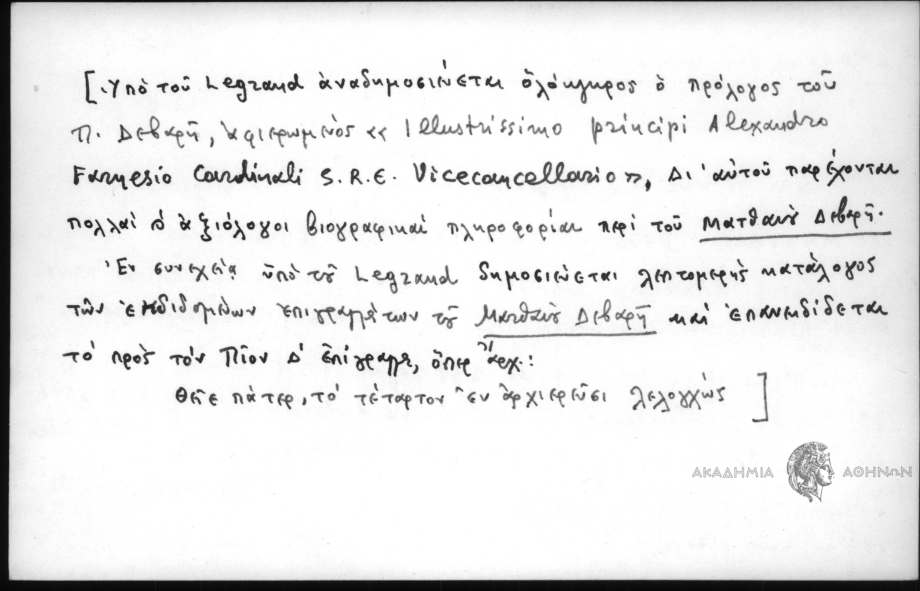 [Ὑπὸ τοῦ Legrand ἀναδημοσιεύεται ὁλόκληρος ὁ πρόλογος τοῦ
Π. Δεβαρῆ, ἀφιερωμένος «Illustrissimo principi Alexandro
Farnesio Cardinali S.R.E. Vicecancellario», Δι' αὐτοῦ παρέχονται
πολλαὶ & ἀξιόλογοι βιογραφικαὶ πληροφορίαι περὶ τοῦ Ματθαίου Δεβαρῆ.
Ἐν συνεχείᾳ ὑπὸ τοῦ Legrand δημοσιεύεται λεπτομερὴς κατάλογος
τῶν ἐκδιδομένων ἐπιγραμμάτων τοῦ Ματθαίου Δεβαρῆ καὶ ἐπανεκδίδεται
τὸ πρὸς τὸν Πῖον Δ' ἐπίγραμμα, ὅπερ ἄρχ.:
Θεῖε πάτερ, τὸ τέταρτον ἐν ἀρχιερεῦσι λελογχὼς]
ΑΚΑΔΗΜΙΑ ΑΘΗΝΩΝ